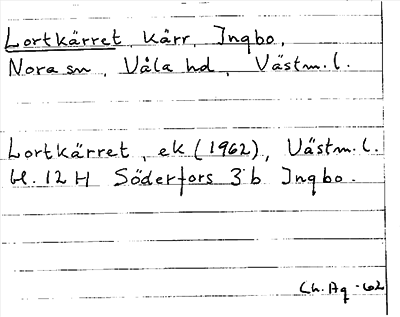 Lortkärret, kärr, Ingbo,
Nora sn, Våla hd, Västm. l.
Lortkärret, ek (1962), Västm. l.
bl. 12 H Söderfors 3 b Ingbo.
Ch. Ag -62